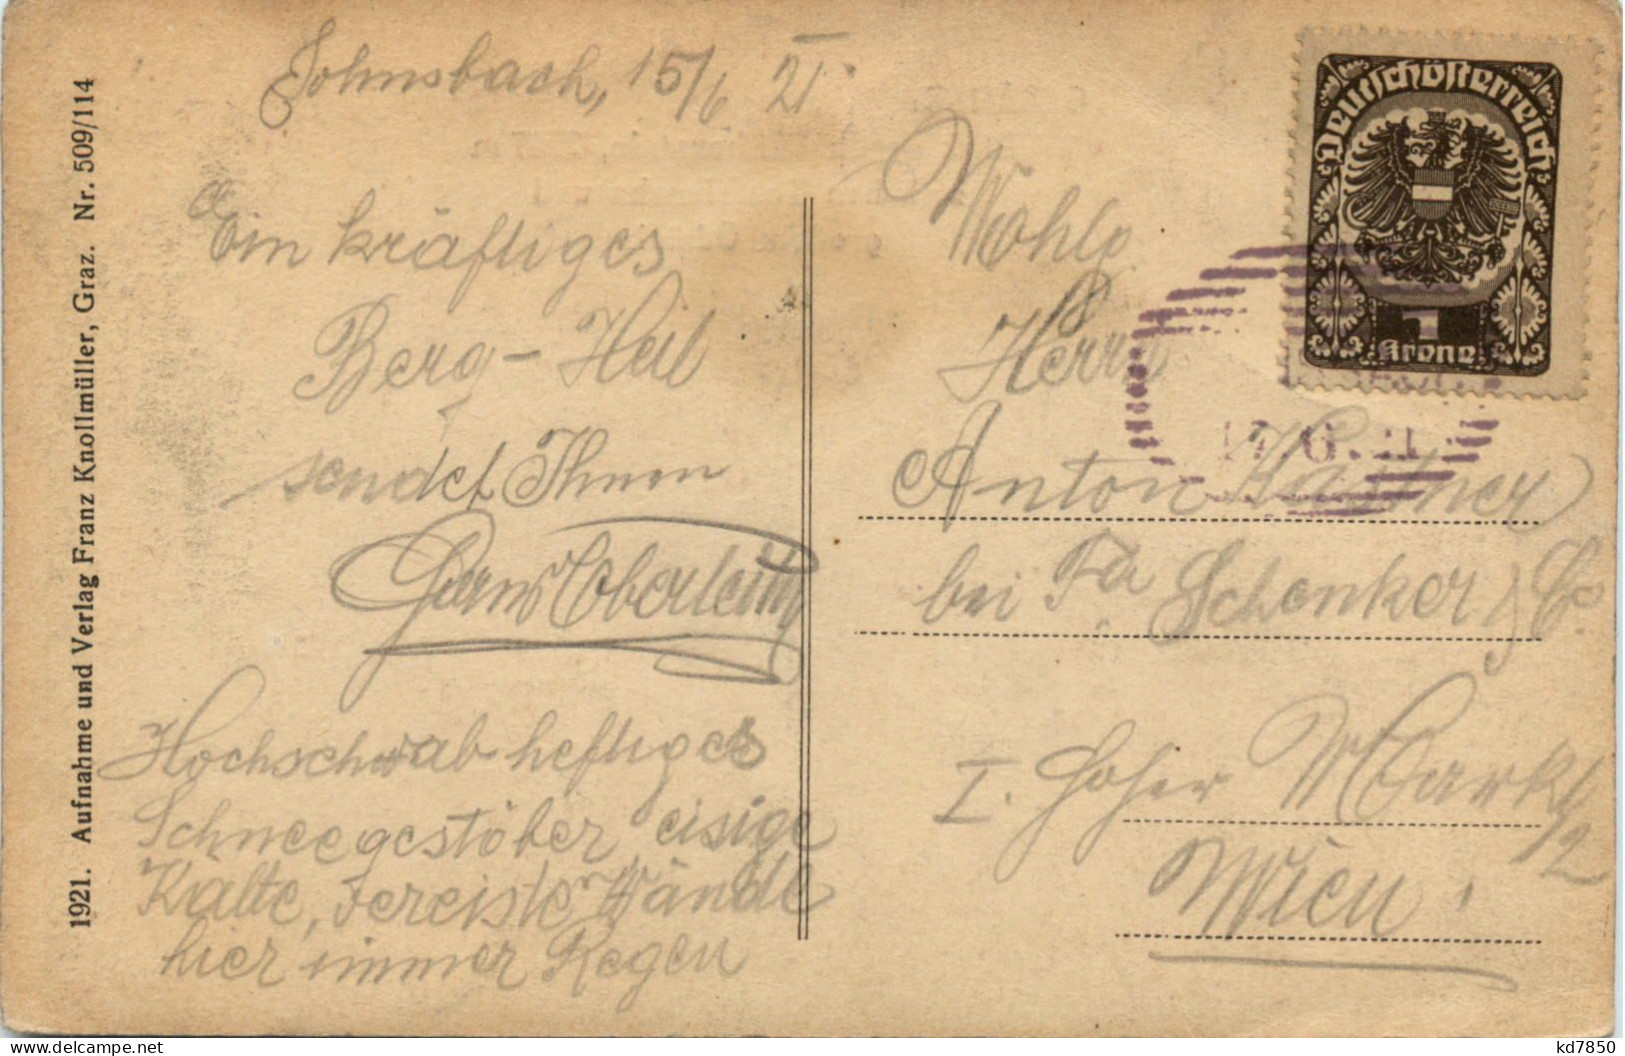 1921. Aufnahme und Verlag Franz Knollmüller, Graz. Nr. 509/114
Johnsbach, 15/6 21
Ein kräftiges
Berg-Heil
sendet Ihnen
Hochschwab heftiges
Schneegestöber eisige
Kälte, vereiste Wände
hier immer Regen
Deutschösterreich
1
Krone
17.6.21
Wohlg
Herrn
Anton Kastner
bei Fa Schenker, Co.
I. Hoher Markt
Wien
kd7850